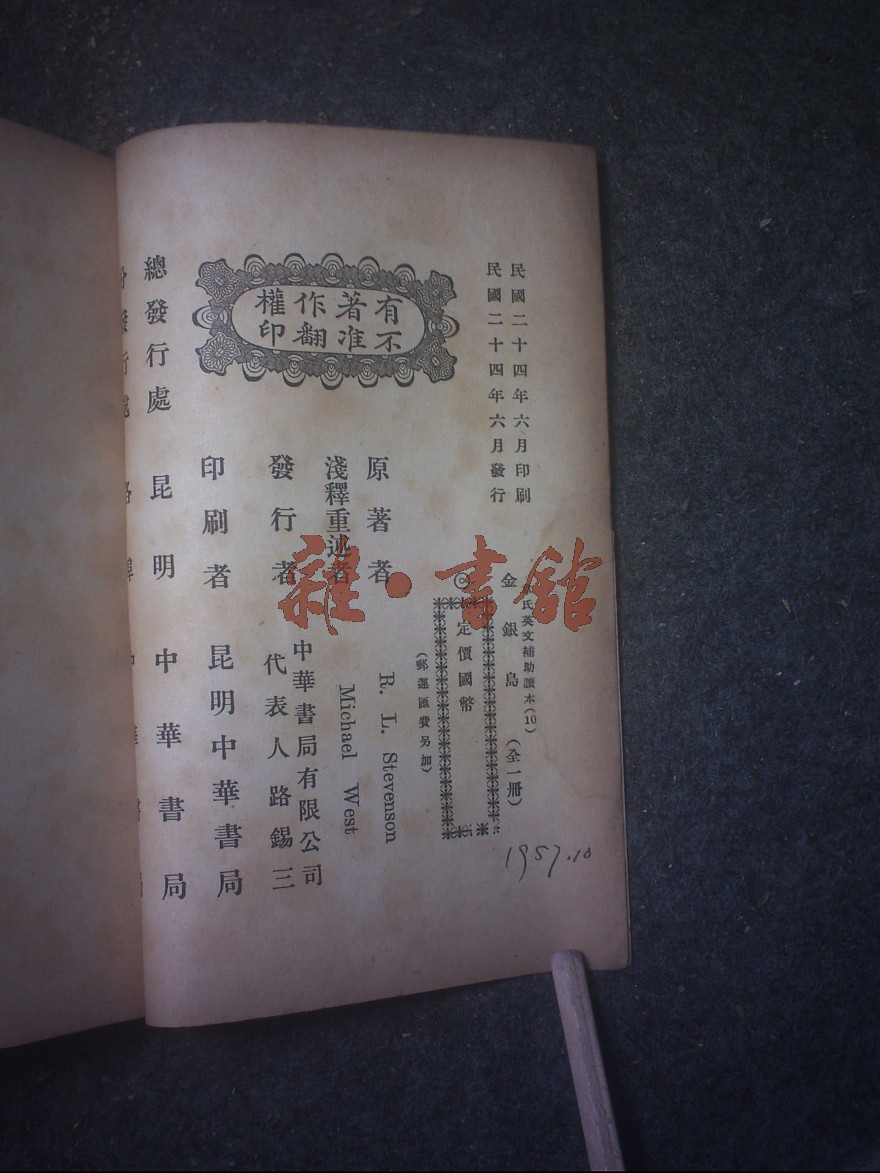 民國二十四年六月印刷
民國二十四年六月發行
氏英文補助讀本(10)
金銀島(全一冊)
定價國幣
(郵運匯費另加)
有著作權
不准翻印
原著者 R. L. Stevenson
淺釋重述者 Michael West
發行者 中華書局有限公司
代表人路錫三
印刷者 昆明中華書局
總發行處 昆明中華書局
分發行處
雜·書館
1957.10